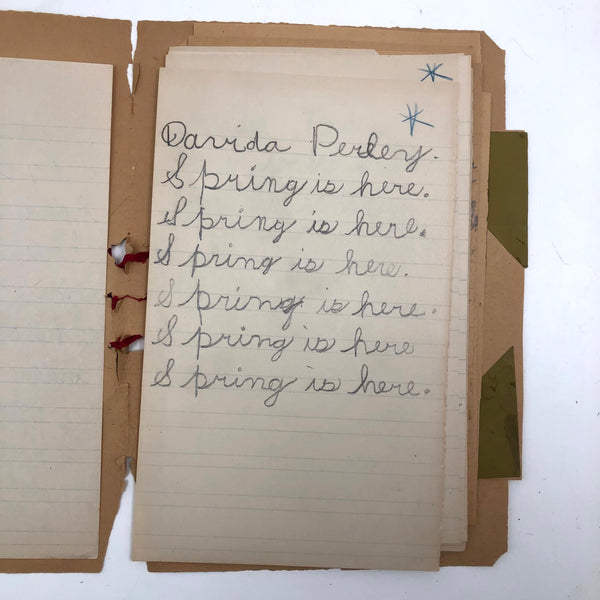 Davida Perley.
Spring is here.
Spring is here.
Spring is here.
Spring is here.
Spring is here
Spring is here.